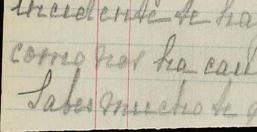 incidente te ha
como nos ha cau
Sabes mucho te q